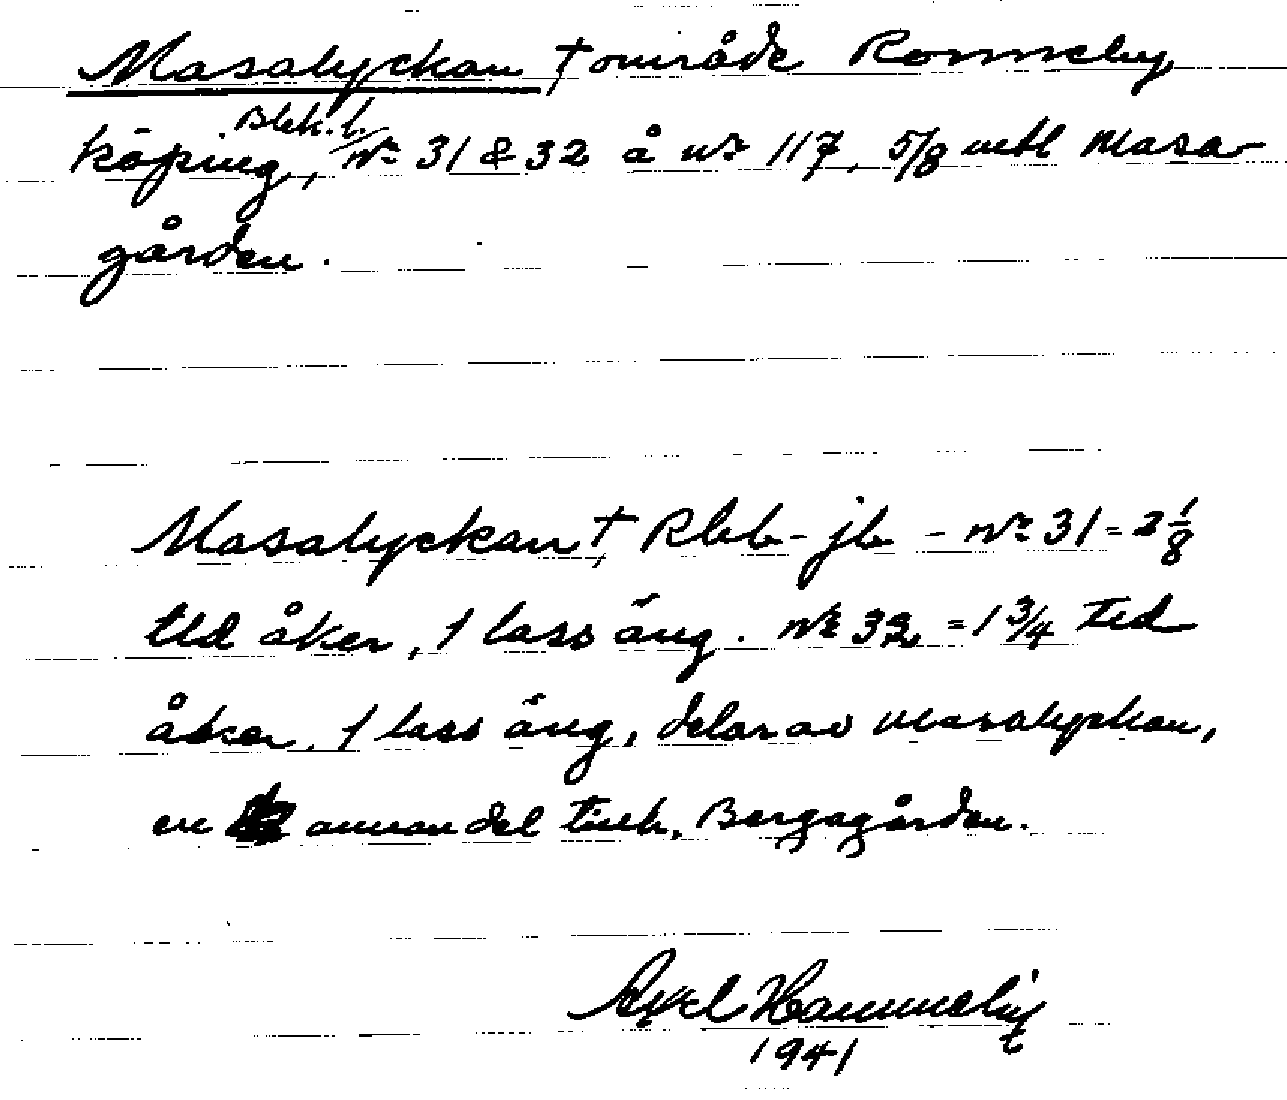 Masalyckan † område Ronneby
köping, Blek. l. nr 31 & 32 å nr 117, 5/8 mtl Masa-
gården.
Masalyckan † Rbb-jb - nr 31 = 2 1/8
tld åker, 1 lass äng. nr 32 = 1 3/4 tld
åker, 1 lass äng, delar av Masalyckan,
en annan del tillh. Bergagården.
Axel
1941